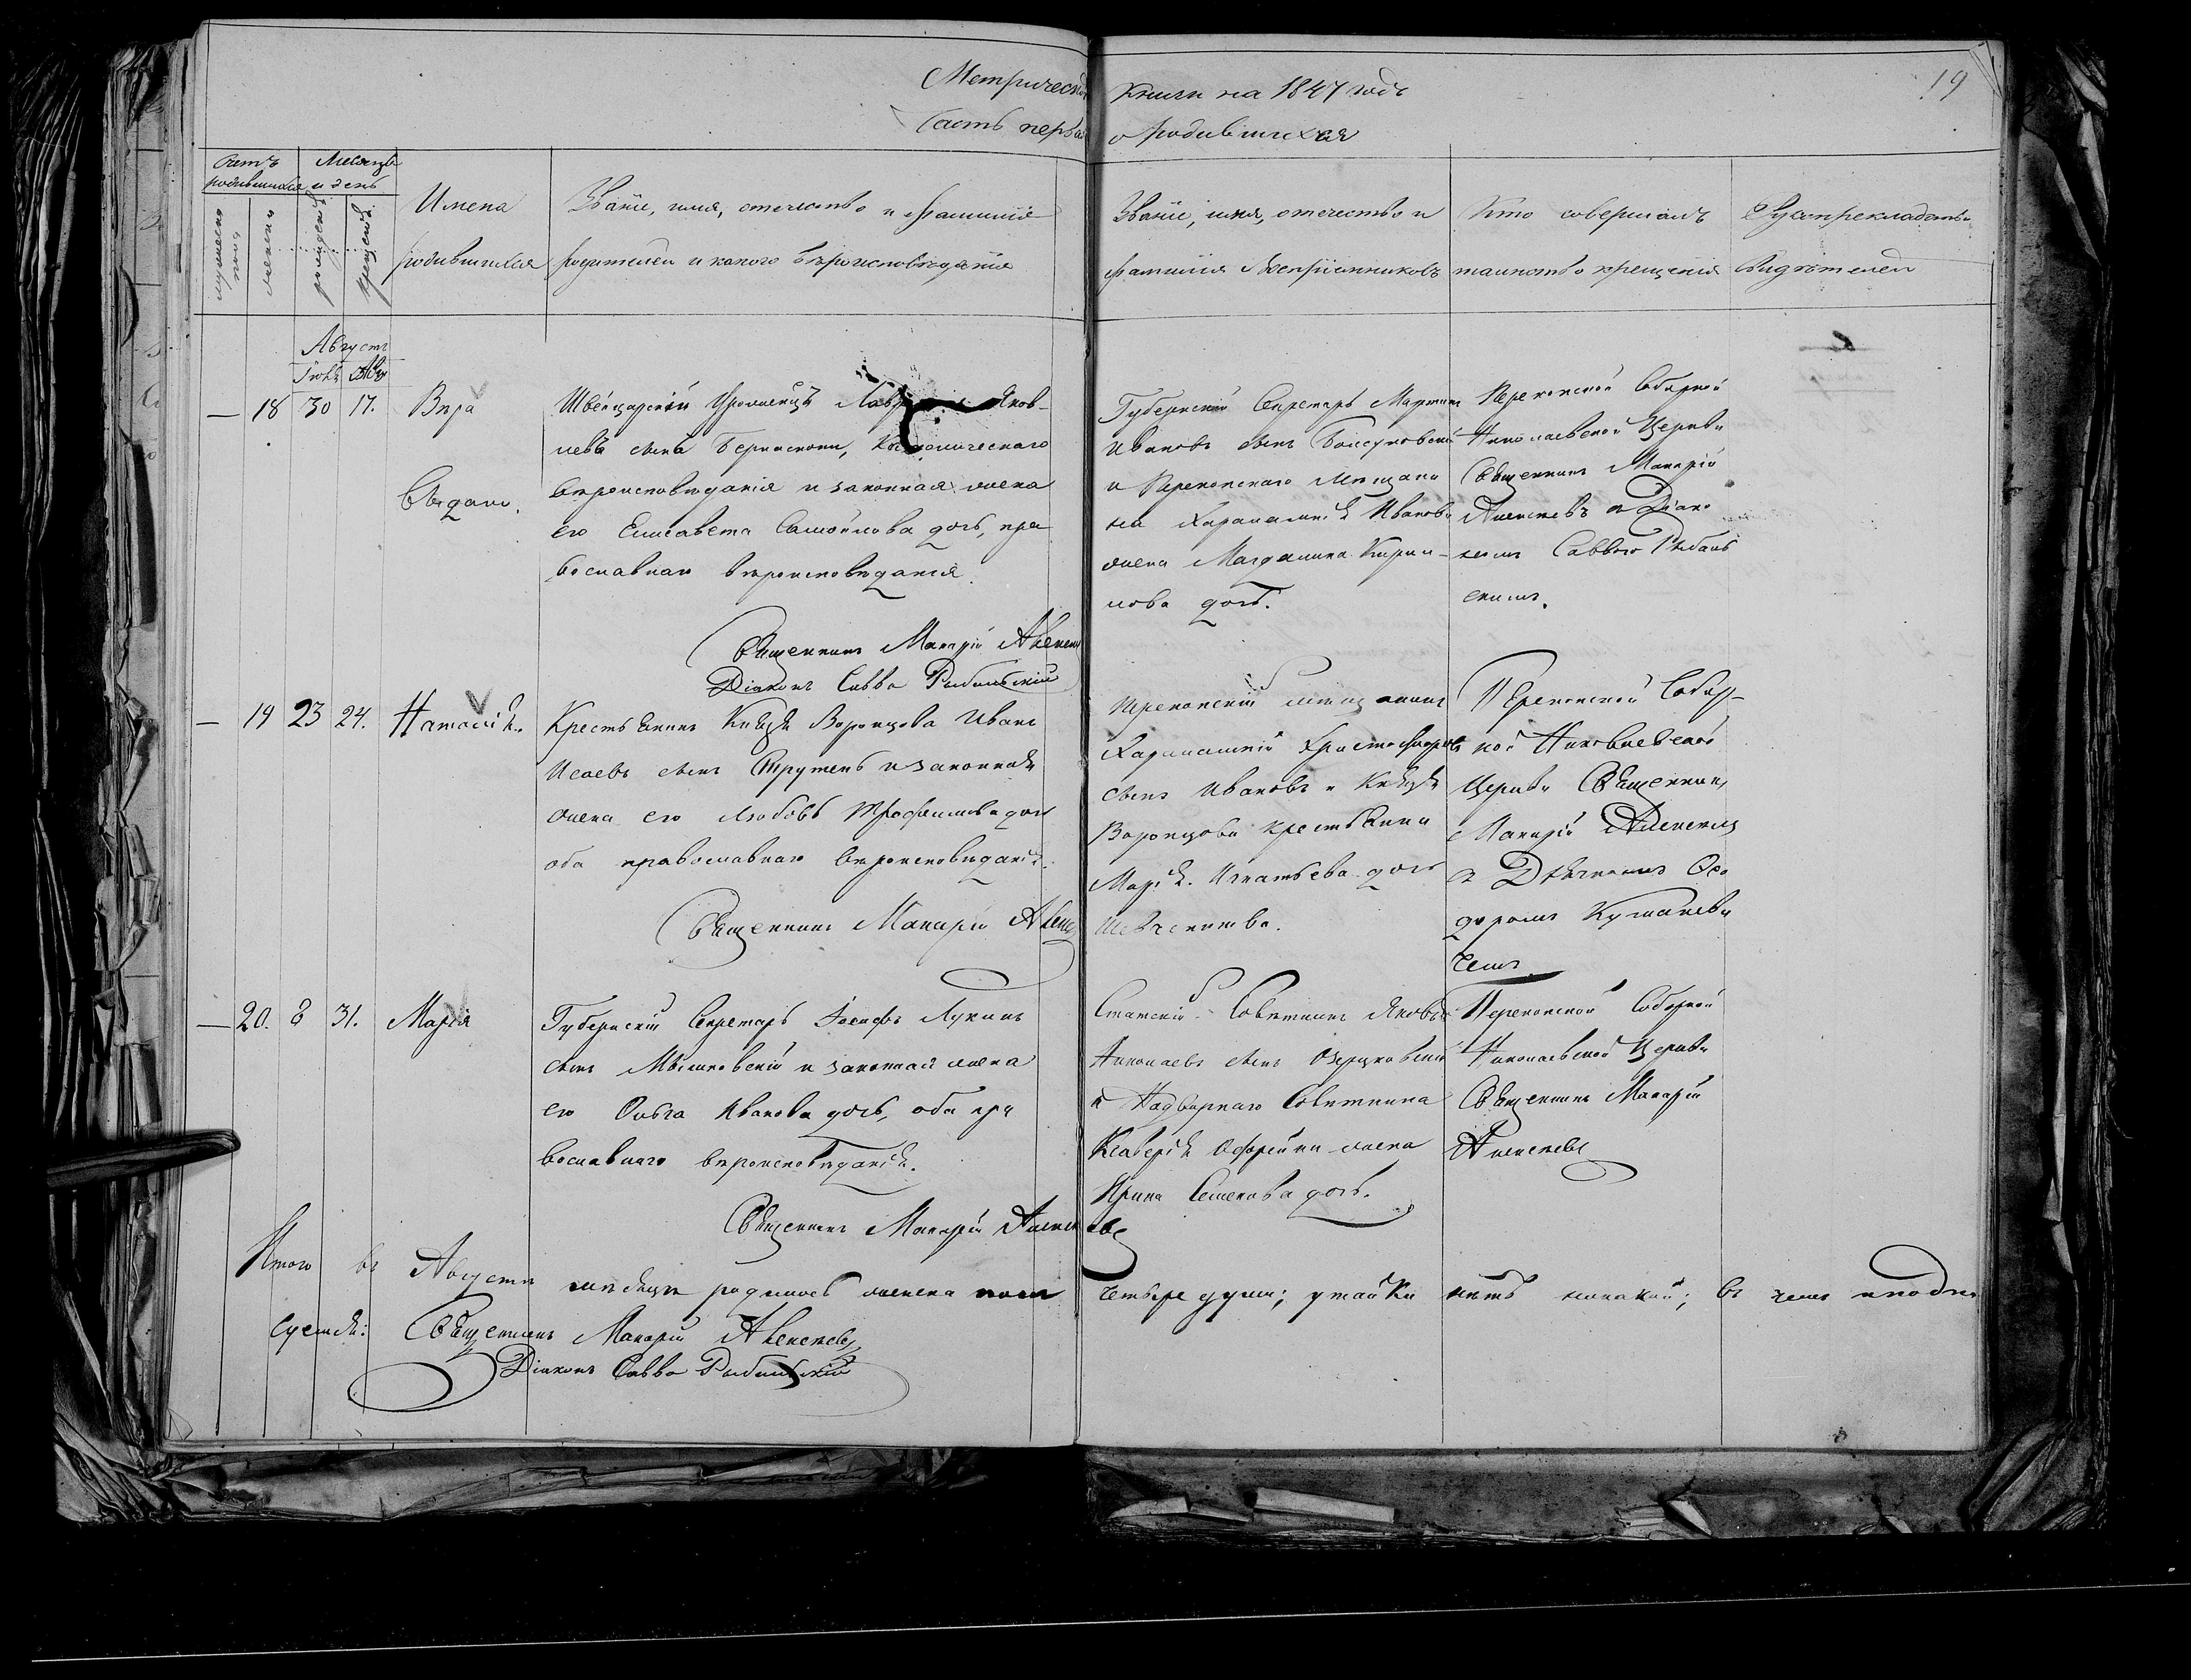 Метрической книги на 1847 годъ
19
Часть первая о родившихся
Счетъ родившихся
Месяцъ и день
мужеска пола
женска
рожденія
крещенія
Имена
родившихся
Званіе, имя, отечество и фамилія
родителей и какого вѣроисповѣданія
Званіе, имя, отечество и
фамилія Воспріемниковъ
Кто совершалъ
таинство крещенія
Рукоприкладство
Свидѣтелей
Августъ
Іюль Авгу
— 18 30 17. Вѣра
Выдано.
Швейцарскій Уроженецъ Яков-
левъ сынъ Католическаго
вѣроисповѣданія и законная жена
его Елисавета Самойлова дочь, пра
вославнаго вѣроисповѣданія.
Священникъ Макарій Алексѣевъ
Діаконъ Савва Рыбальскій
Губернскій Секретарь Мартинъ
Ивановъ сынъ
и Перекопскаго Мещани
на Иванов
жена Магдалина Кирил-
лова дочь.
Перекопской Соборной
Николаевской Церкви
Священникъ Макарій
Алексѣевъ съ Діако
номъ Саввою Рыбаль
скимъ.
— 19 23 24. Наталія.
Крестьянинъ Князя Воронцова Иванъ
Исаевъ сынъ Трутень и законная
жена его Любовь Трофимова дочь
оба православнаго вѣроисповѣданія.
Священникъ Макарій Алексѣевъ
Перекопскій мещанинъ
Христофоръ
сынъ Ивановъ и Князя
Воронцова крестьянка
Марія Игнатьева дочь
Шевченкова.
Перекопской Собор-
ной Николаевской
Церкви Священникъ
Макарій Алексѣевъ
съ Дьячкомъ Ѳео
доромъ Кушакеви
чемъ.
— 20. 8 31. Марія
Губернскій Секретарь Іосифъ Лукинъ
сынъ и законная жена
его Ольга Иванова дочь, оба пра
вославнаго вѣроисповѣданія.
Священникъ Макарій Алексѣевъ
Статскій Совѣтникъ Яковъ
Николаевъ сынъ Озерцковскій
и Надворнаго Совѣтника
Ксаверія Офрейна жена
Ирина Семенова дочь.
Перекопской Соборной
Николаевской Церкви
Священникъ Макарій
Алексѣевъ
Итого въ Августѣ мѣсяцѣ родилось женска пола четыре души; утайки нѣтъ никакой; въ чемъ и подпи
суемся: Священникъ Макарій Алексѣевъ
Діаконъ Савва Рыбальскій